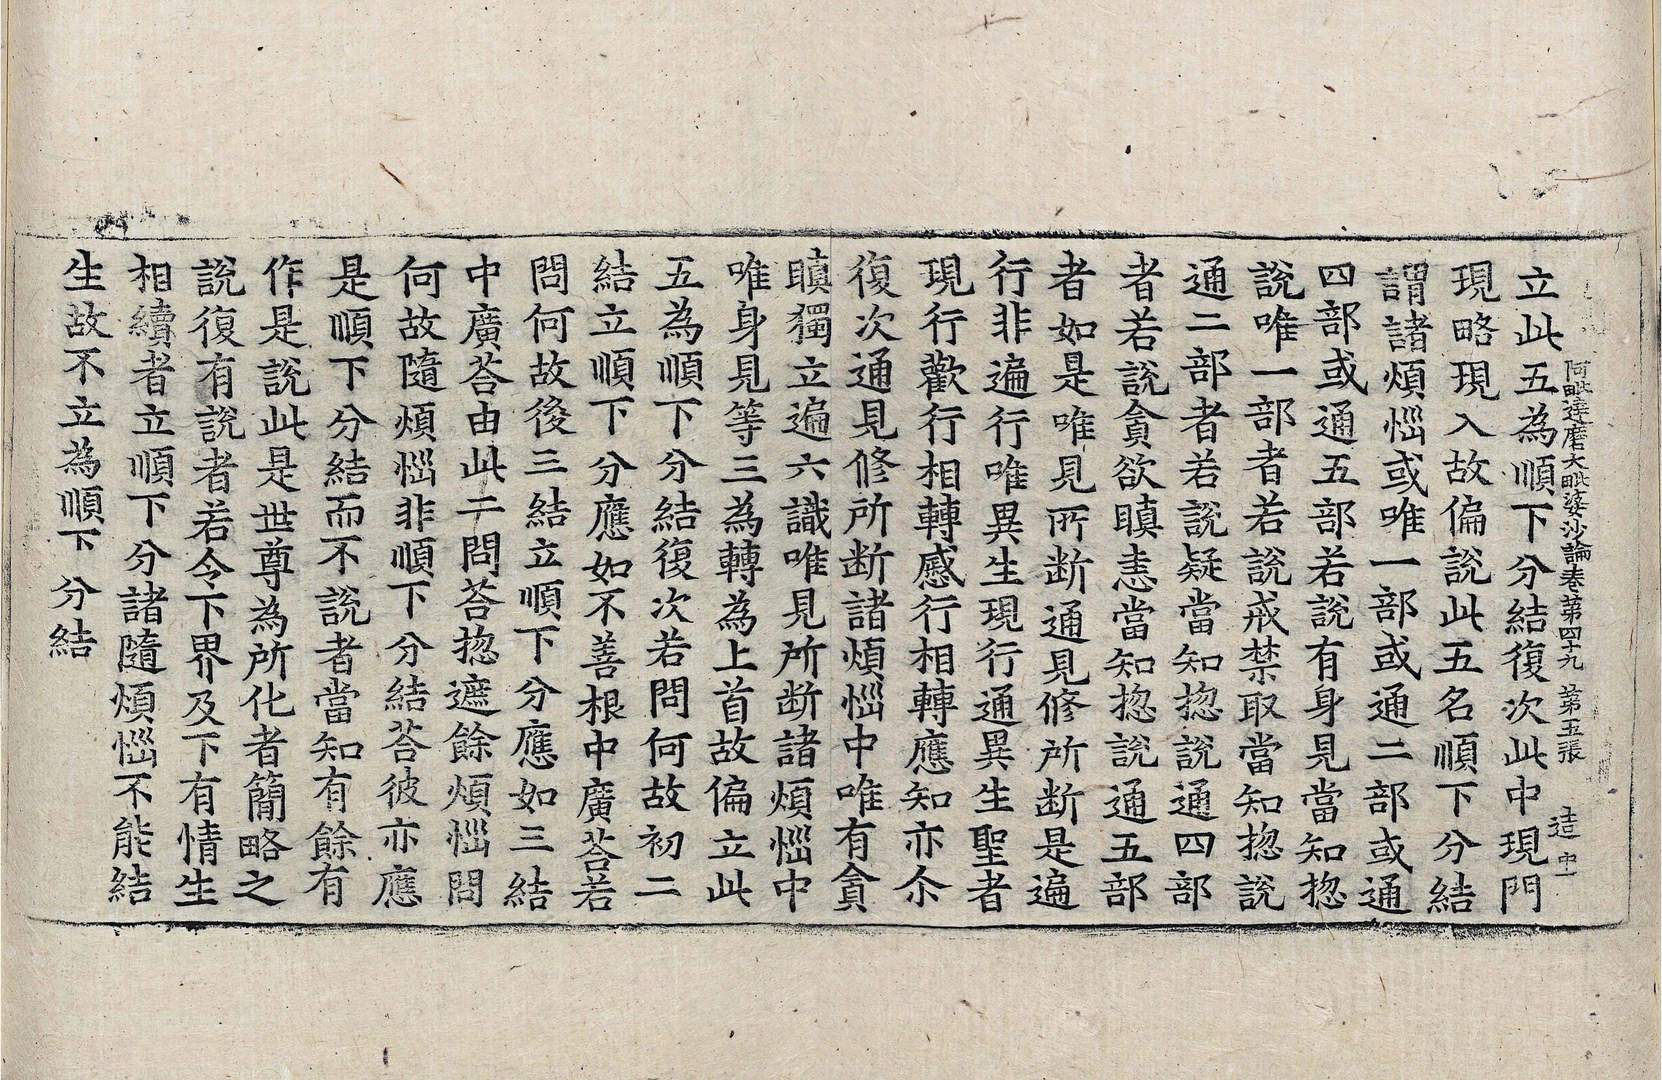 阿毗達磨大毗婆沙論卷第四十九 第五張 造 中
立此五為順下分結復次此中現門
現略現入故偏說此五名順下分結
謂諸煩惱或唯一部或通二部或通
四部或通五部若說有身見當知揔
說唯一部者若說戒禁取當知揔說
通二部者若說疑當知揔說通四部
者若說貪欲瞋恚當知揔說通五部
者如是唯見所断通見修所断是遍
行非遍行唯異生現行通異生聖者
現行歡行相轉慼行相轉應知亦尒
復次通見修所断諸煩惱中唯有貪
瞋獨立遍六識唯見所断諸煩惱中
唯身見等三為轉為上首故偏立此
五為順下分結復次若問何故初二
結立順下分應如不善根中廣荅若
問何故後三結立順下分應如三結
中廣荅由此二問荅揔遮餘煩惱問
何故隨煩惱非順下分結荅彼亦應
是順下分結而不說者當知有餘有
作是說此是世尊為所化者簡略之
說復有說者若令下界及下有情生
相續者立順下分諸隨煩惱不能結
生故不立為順下分結